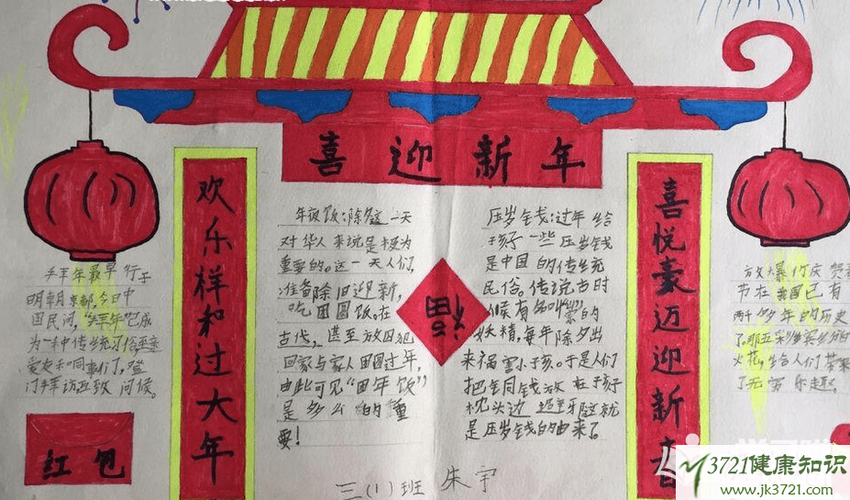 喜迎新年
欢乐样和过大年
年夜饭：除夕这一天
对华人来说是极为
重要的。这一天人们，
准备除旧迎新，
吃团圆饭。在
古代，甚至放囚犯
回家与家人团圆过年，
由此可见“团年饭”
是多么的重
要！
福
压岁钱：过年给
孩子一些压岁钱
是中国的传统
民俗。传说古时
候有名叫“祟”的
妖精，每年除夕出
来祸害小孩。于是人们
把铜钱放在孩子
枕头边 这就
是压岁钱的由来了。
喜悦豪迈迎新春
拜年最早行于
明朝京都，今日中
国民间，“拜年”已成
为一种传统习俗，
爱友和同事们，登
门拜访互致问候。
红包
放爆竹庆贺
节在我国已有
两千多年的历史
了。那五彩缤纷的
火花，给人们带来
了无穷乐趣。
三(1)班 朱宇
3721健康知识
www.jk3721.com